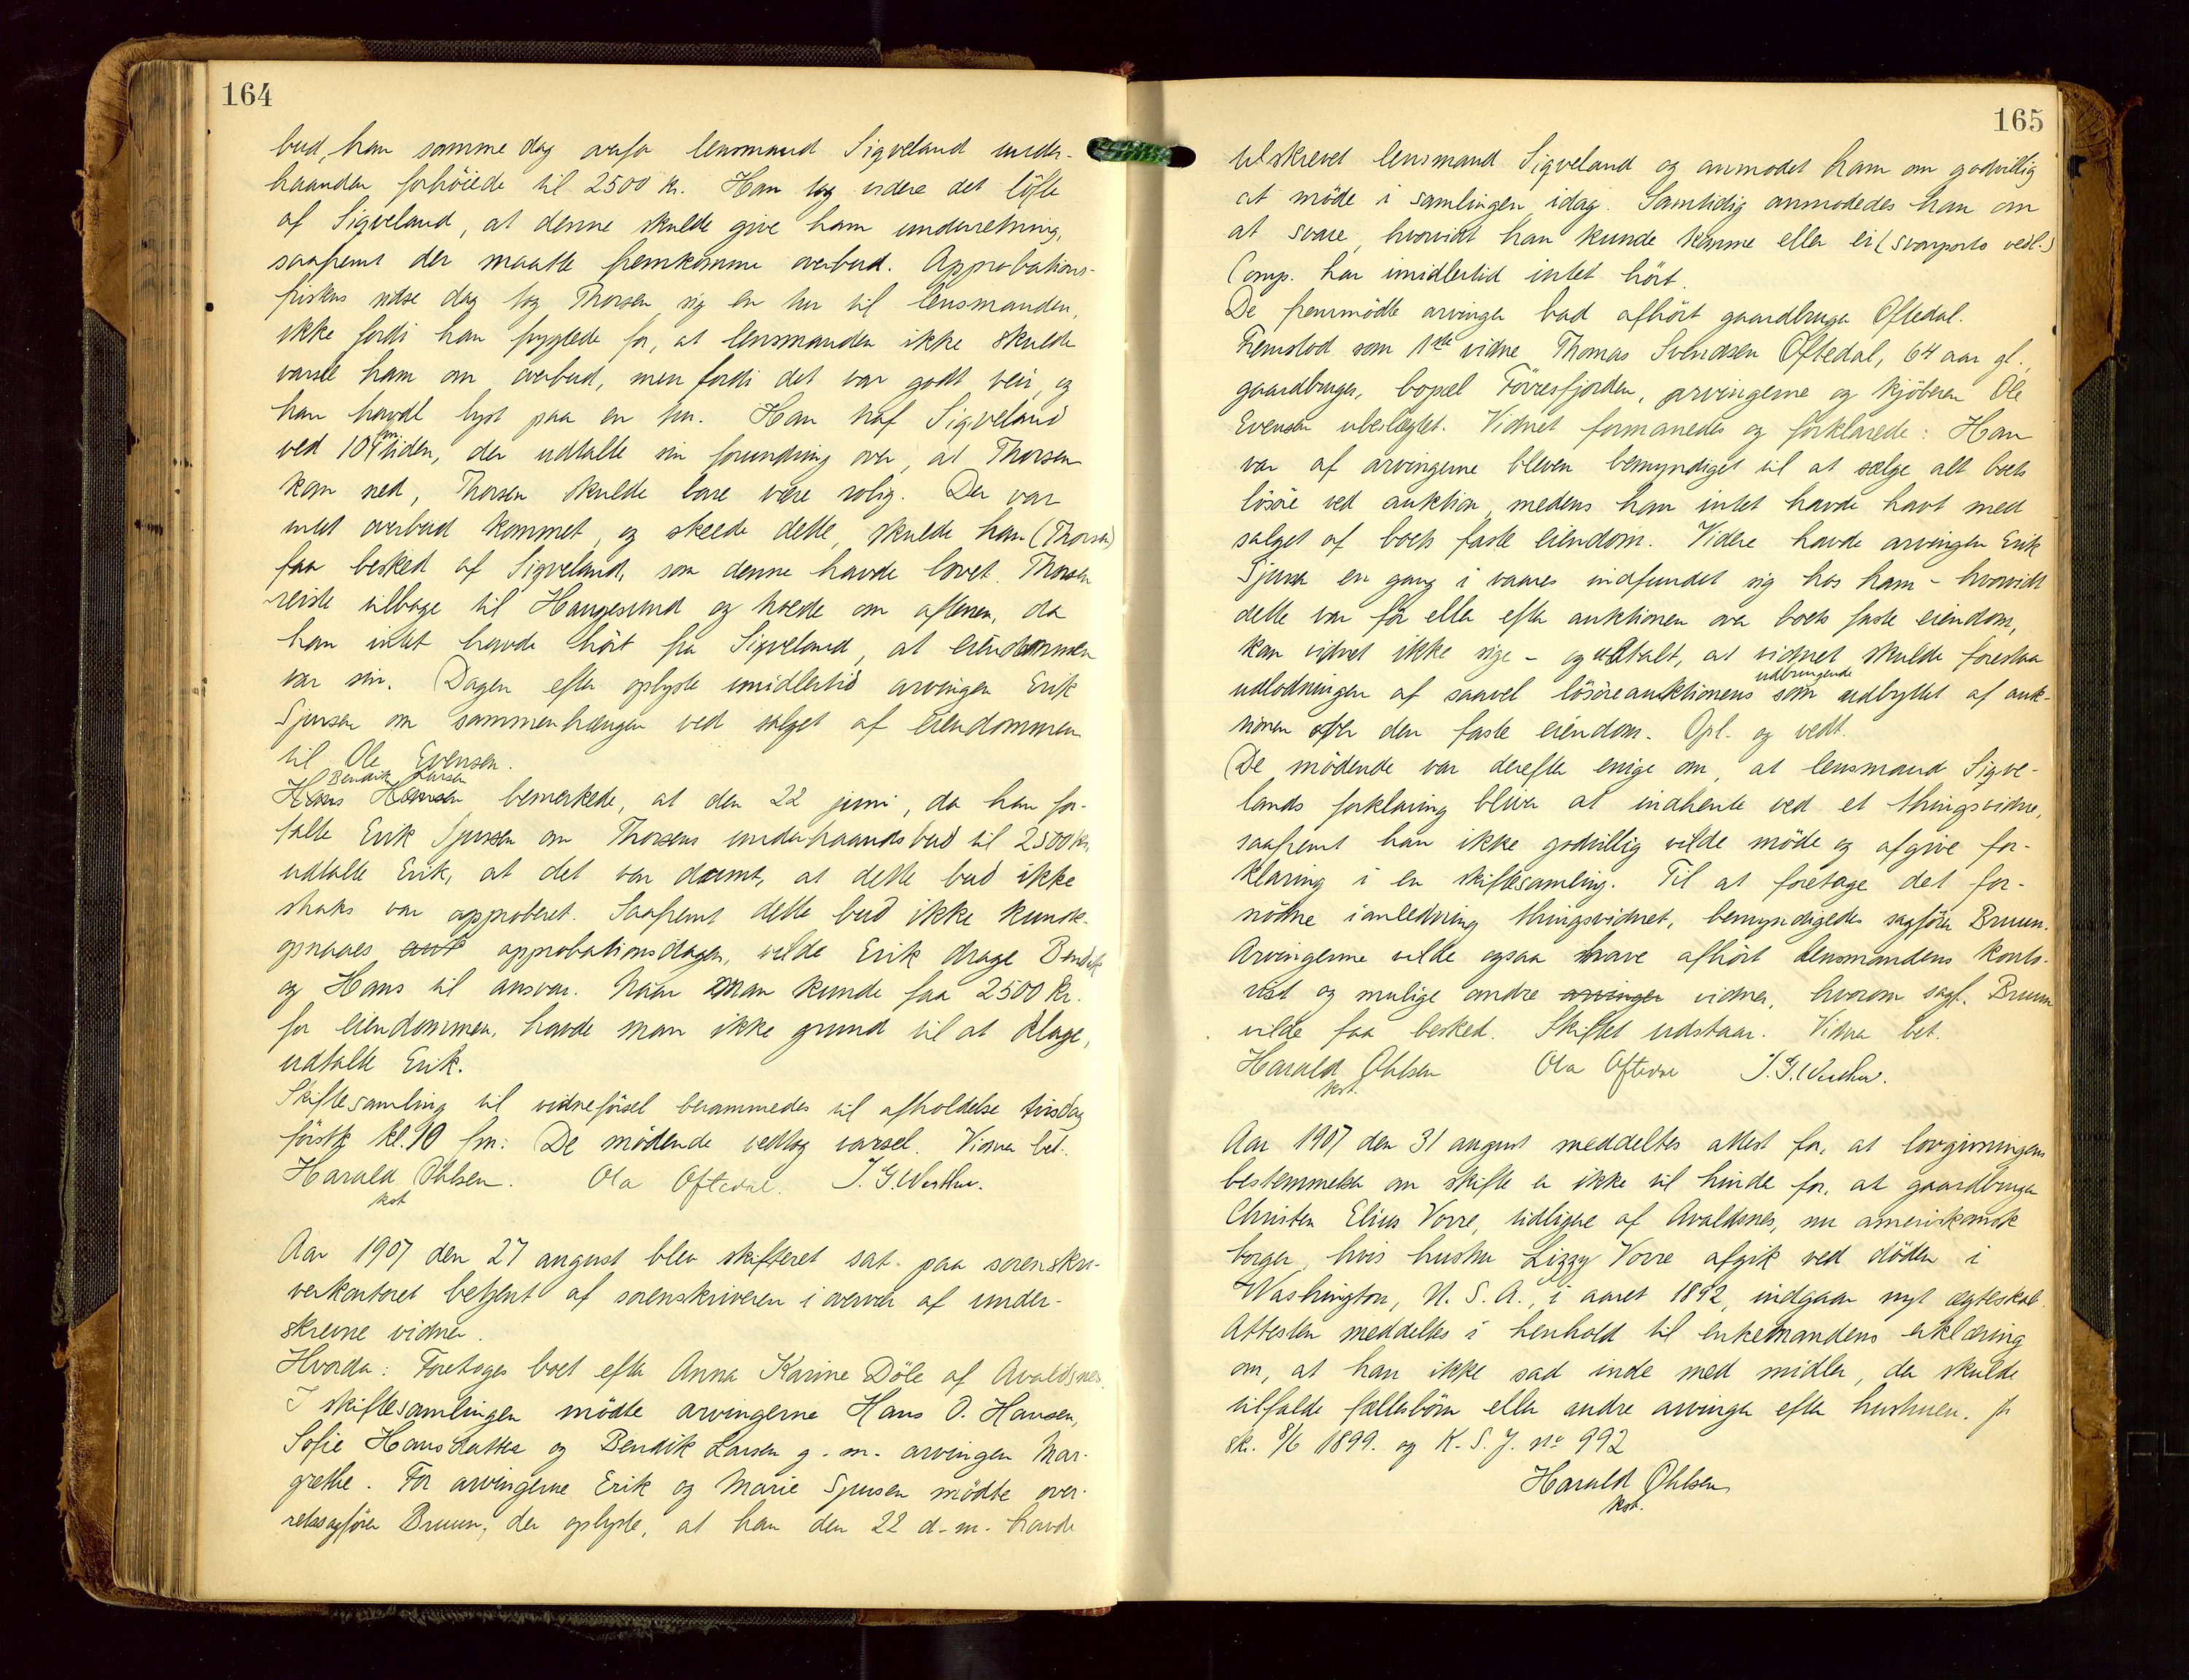 164
bud, han samme dag overfor lensmand Sigveland under-
haanden forhöiede til 2500 kr. Han tog videre det löfte
af Sigveland, at denne skulde give ham underretning,
saafremt der maatte fremkomme overbud. Approbations-
friskens sidste dag tog Thorsen sig en tur til lensmanden,
ikke fordi han frygtede for, at lensmanden ikke skulde
varsle ham om overbud, men fordi det var godt veir, og
han havde lyst paa en tur. Han traf Sigveland
ved 10 fm tiden, der udtalte sin forundring over, at Thorsen
kom ned, Thorsen skulde bare være rolig. Der var
intet overbud kommet, og skeede dette, skulde han (Thorsen)
faa besked af Sigveland, som denne havde lovet. Thorsen
reiste tilbage til Haugesund og troede om aftenen, da
han intet havde hört fra Sigveland, at eiendommen
var sin. Dagen efter oplyste imidlertid arvingen Erik
Sjursen om sammenhængen ved salget af eiendommen
til Ole Evensen.
Bendik Larsen
Hans Hansen bemerkede, at den 22 juni, da han for-
talte Erik Sjursen om Thorsens underhaandsbud til 2500 kr,
udtalte Erik, at det var dumt, at dette bud ikke
straks var approberet. Saafremt dette bud ikke kunde
opnaaes approbationsdagen, vilde Erik drage Bendik
og Hans til ansvar. Naar man kunde faa 2500 kr.
for eiendommen, havde man ikke grund til at klage,
udtalte Erik.
Skiftesamling til vidneförsel berammedes til afholdelse tirsdag
förstk kl. 10 fm. De mödende vedtog varsel. Vidner bet.
Harald Ohlsen. Ola Oftedal. J. G. Werther.
kst
Aar 1907 den 27 august blev skifteret sat paa sorenskri-
verkontoret betjent af sorenskriveren i overvær af under-
skrevne vidner.
Hvorda: Foretoges boet efter Anna Karine Döle af Avaldsnes.
I skiftesamlingen mödte arvingerne Hans O. Hansen,
Sofie Hansdatter og Bendik Larsen g. m. arvingen Mar-
grethe. For arvingerne Erik og Marie Sjursen mödte over-
retssagförer Bruun, der oplyste, at han den 22 d. m. havde
165
tilskrevet lensmand Sigveland og anmodet ham om godvillig
at möde i samlingen idag. Samtidig anmodedes han om
at svare, hvorvidt han kunde komme eller ei (svarporto vedl.)
Comp. har imidlertid intet hört.
De fremmödte arvinger bad afhört gaardbruger Oftedal.
Fremstod som 1ste vidne Thomas Svendsen Oftedal, 64 aar gl.,
gaardbruger, bopæl Förresfjorden, arvingerne og kjöberen Ole
Evensen ubeslægtet. Vidnet formanedes og forklarede: Han
var af arvingerne bleven bemyndiget til at sælge alt boets
lösöre ved auktion, medens han intet havde havt med
salget af boets faste eiendom. Videre havde arvingen Erik
Sjursen en gang i vaares indfundet sig hos ham - hvorvidt
dette var för eller efter auktionen over boets faste eiendom,
kan vidnet ikke sige - og udtalt, at vidnet skulde forestaa
udbringende
udlodningen af saavel lösöreauktionens som udbyttet af auk-
tionen over den faste eiendom. Opl. og vedt.
De mödende var derefter enige om, at lensmand Sigve-
lands forklaring bliver at indhente ved et thingsvidne,
saafremt han ikke godvillig vilde möde og afgive for-
klaring i en skiftesamling. Til at foretage det for-
nödne i anledning thingsvidnet, bemyndigedes sagförer Bruun.
Arvingerne vilde ogsaa have afhört lensmandens konto-
rist og mulige andre arvinger vidner, hvorom sagf. Bruun
vilde faa besked. Skiftet udstaar. Vidner bet.
Harald Ohlsen Ola Oftedal J. G. Werther.
kst.
Aar 1907 den 31 august meddeltes attest for, at lovgivningens
bestemmelser om skifte er ikke til hinder for, at gaardbruger
Christen Elius Vorre, tidligere af Avaldsnes, nu amerikansk
borger, hvis hustru Lizzy Vorre afgik ved döden i
Washington, U. S. A., i aaret 1892, indgaar nyt ægteskab.
Attesten meddeltes i henhold til enkemandens erklæring
om, at han ikke sad inde med midler, der skulde
tilfalde fællesbörn eller andre arvinger efter hustruen. Jfr
sk. 8/6 1899. og K. S. J. no 992
Harald Ohlsen
kst.